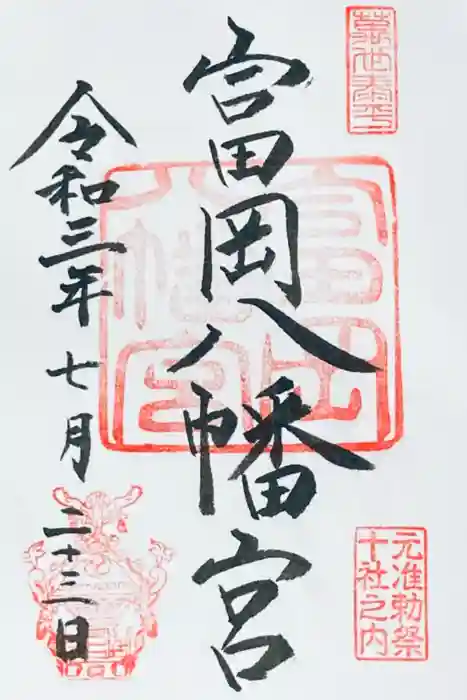 萬世泰平
冨岡八幡宮
元准勅祭
十社之内
令和三年七月二十三日